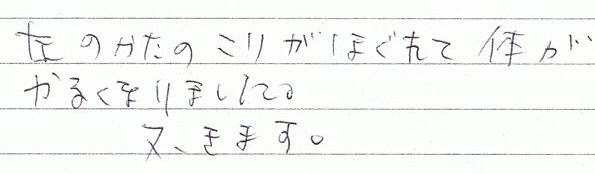 左のかたのこりがほぐれて体が
かるくなりました。
又、きます。